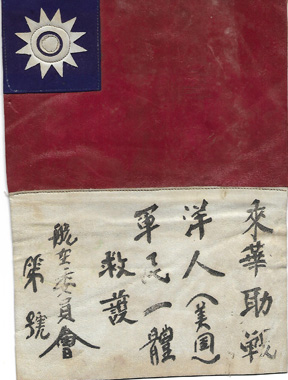 來華助戰
洋人（美国）
軍民一體
救護
航空委員會
第 號